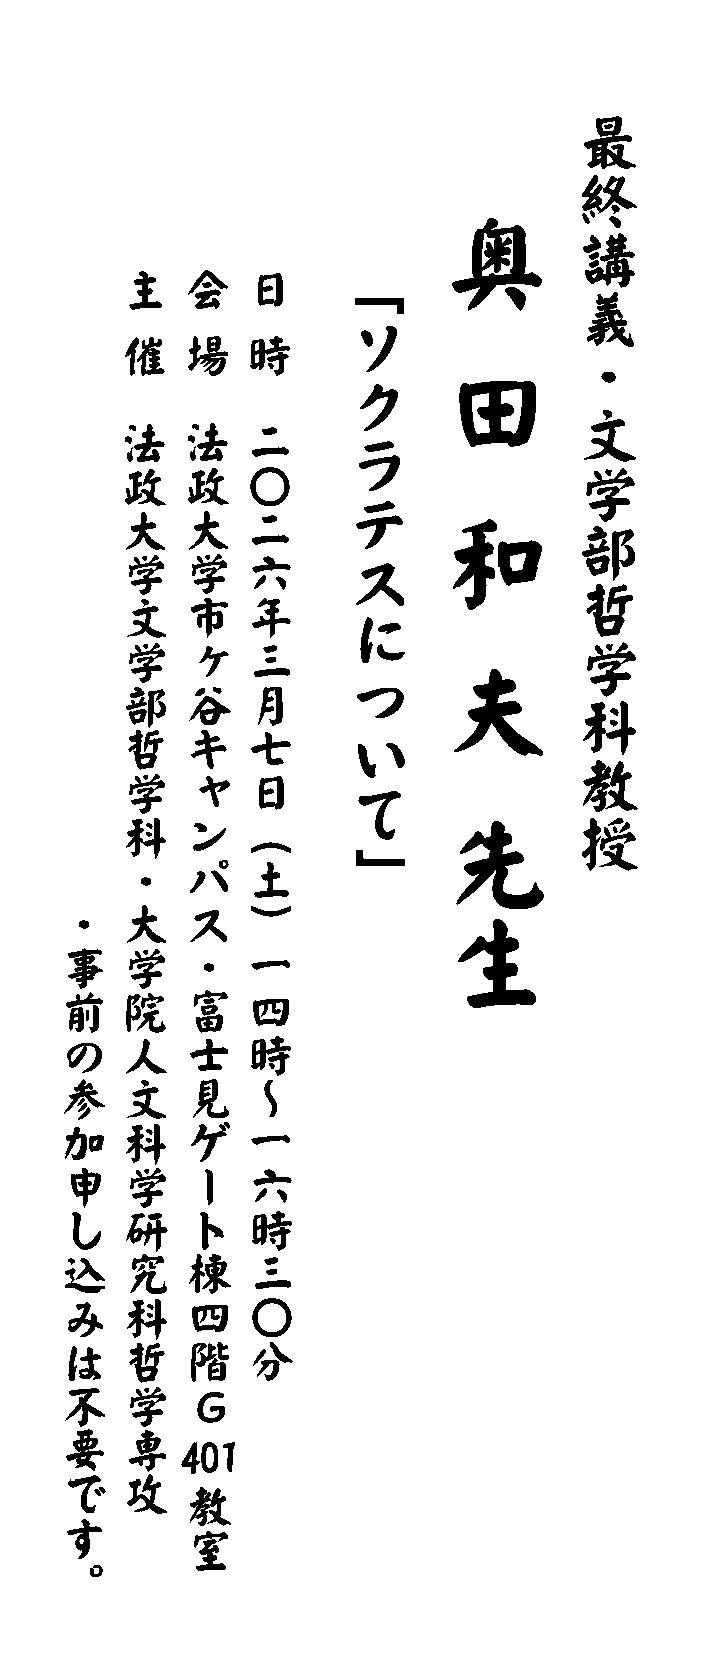 最終講義・文学部哲学科教授
奥田和夫先生
「ソクラテスについて」
日時　二〇二六年三月七日（土）一四時～一六時三〇分
会場　法政大学市ケ谷キャンパス・富士見ゲート棟四階G401教室
主催　法政大学文学部哲学科・大学院人文科学研究科哲学専攻
・事前の参加申し込みは不要です。